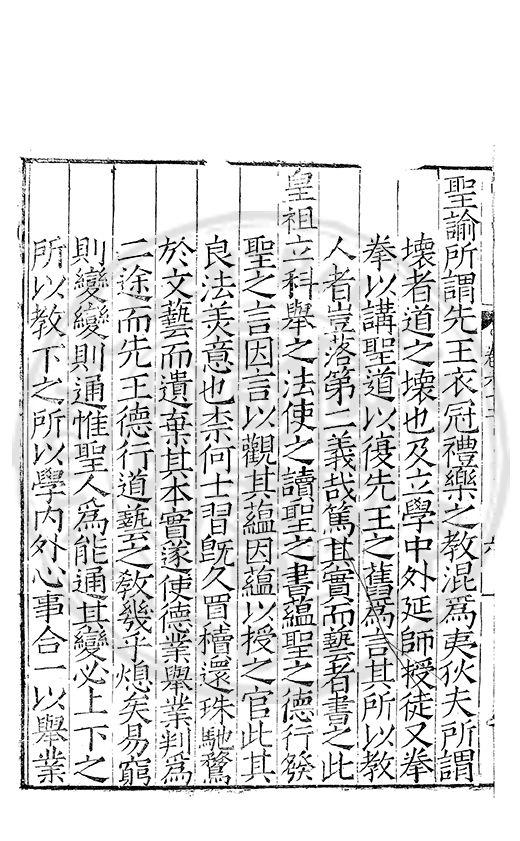 聖諭所謂先王衣冠禮樂之教混爲夷狄夫所謂
壞者道之壞也及立學中外延師授徒又拳
拳以講聖道以復先王之舊爲言其所以教
人者豈落第二義哉篤其實而藝者書之此
皇祖立科舉之法使之讀聖之書蘊聖之德行發
聖之言因言以觀其蘊因蘊以授之官此其
良法美意也柰何士習旣久買櫝還珠馳騖
於文藝而遺棄其本實遂使德業舉業判爲
二途而先王德行道藝之敎幾乎熄矣易窮
則變變則通惟聖人爲能通其變必上下之
所以教下之所以學內外心事合一以舉業